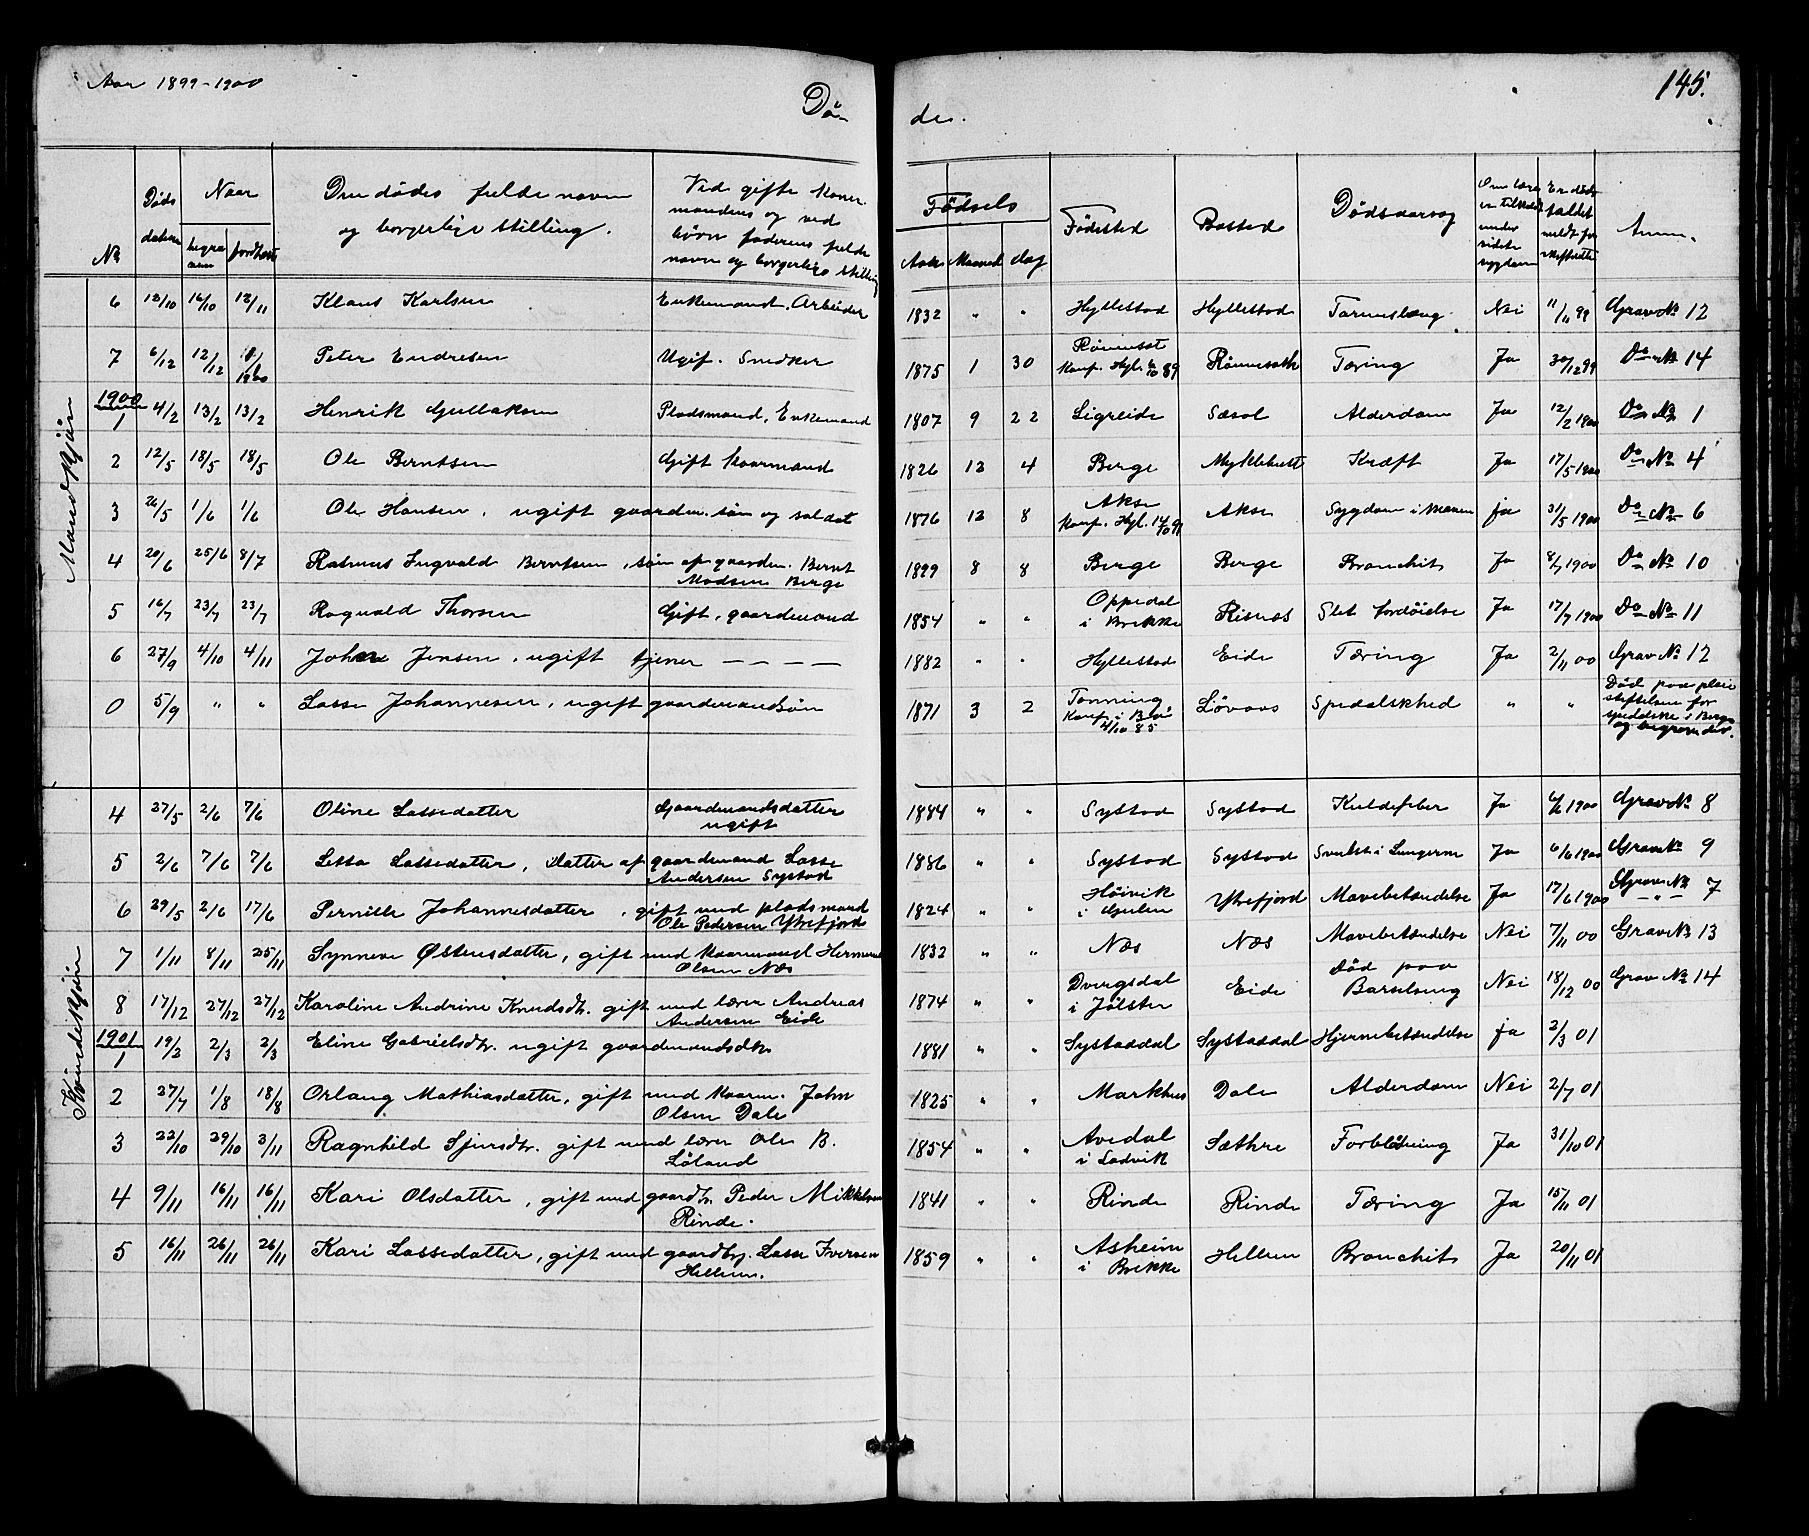 Aar 1899-1900
Dö- de.
145.
Nr
Döds datum
Naar
begra
jordfæste
Den dödes fulde navn og borgerlige stilling.
Ved gifte koner mandens og ved börn faderens fulde navn og borgerlige stilling
Födsels
Aar Maaned dag
Födested
Bosted
Dödsaarsag
Om læge er tilkaldt under sidste sygdom
Er döds faldet meldt for skifteretten
Anm.
Mandkjön
6 12/10 16/10 12/11 Klaus Karlsen Enkemand, Arbeider 1832 " " Hyllestad Hyllestad Tarmslæng Nei 11/11 99 Grav No 12
7 6/12 12/12 1/1 1900 Peter Endresen Ugif. Snedker 1875 1 30 Rönneset Konf. Hyl. 6/10 89 Rönneseth Tæring Ja 30/12 99 Do No 14
1900
1 4/2 13/2 13/2 Henrik Gullaksen Pladsmand, Enkemand 1807 9 22 Ligreide Sæsol Alderdom Ja 12/2 1900 Do No 1
2 12/5 18/5 18/5 Ole Berntsen Gift kaarmand 1826 12 4 Berge Myklebust Kræft Ja 17/5 1900 Do No 4
3 26/5 1/6 1/6 Ole Hansen, ugift gaardm. sön og soldat 1876 12 8 Akse Konf. Hyl. 14/10 91 Akse Sygdom i Maven ja 31/5 1900 Do No 6
4 20/6 25/6 8/7 Rasmus Ingvald Berntsen, sön af gaardm. Bernt Madsen Berge 1899 8 8 Berge Berge Bronchit Ja 8/7 1900 Do No 10
5 16/7 23/7 23/7 Ragnvald Thorsen Gift, gaardmand 1854 " " Oppedal i Brekke Risnæs Slet fordöielse Ja 17/7 1900 Do No 11
6 27/9 4/10 4/11 Johan Jensen, ugift tjener – – – – 1882 " " Hyllestad Eide Tæring Ja 2/11 00 Grav No 12
0 5/9 " " Lasse Johannesen, ugift gaardmandssön 1871 3 2 Tonning Konf. i Bö 4/10 85 Lövaas Spedalskhed " " Död paa pleiestiftelsen for spedalske i Bergen og begravet der.
Kvindekjön
4 27/5 2/6 7/6 Oline Lassedatter Gaardmandsdatter ugift 1884 " " Systad Systad Kuldefeber Ja 6/6 1900 Grav No 8
5 2/6 7/6 7/6 Lessa Lassedatter, Datter af gaardmand Lasse Andersen Systad 1886 " " Systad Systad Svulst i Lungerne Ja 6/6 1900 Grav No 9
6 29/5 2/6 17/6 Pernille Johannesdatter, gift med pladsmand Ole Pedersen Ytrefjord 1824 " " Höivik i Gulen Ytrefjord Mavebetændelse Ja 17/6 1900 Grav No 7
7 1/11 8/11 25/11 Synneve Östensdatter, gift med kaarmand Hermund Olsen Næs 1832 " " Næs Næs Mavebetændelse Nei 7/11 00 Grav No 13
8 17/12 27/12 27/12 Karoline Andrine Knudsdtr. gift med lærer Andreas Andersen Eide 1874 " " Dvergsdal i Jölster Eide Död paa Barselseng Nei 18/12 00 Grav No 14
1901
1 19/2 2/3 2/3 Eline Gabrielsdtr. ugift gaardmandsdtr. 1881 " " Systaddal Systaddal Hjernebetændelse ja 2/3 01
2 27/7 1/8 18/8 Orlaug Mathiasdatter, gift med kaarm. John Olsen Dale 1825 " " Markhus Dale Alderdom Nei 2/7 01
3 22/10 29/10 3/11 Ragnhild Sjursdtr. gift med lærer Ole B. Löland 1854 " " Avedal i Ladvik Sæthre Forblödning Ja 31/10 01
4 9/11 16/11 16/11 Kari Olsdatter, gift med gaardbr. Peder Mikkelsen Rinde. 1841 " " Rinde Rinde Tæring Ja 15/11 01
5 16/11 26/11 26/11 Kari Lassedatter, gift med gaardbr. Lasse Iversen Hellum. 1859 " " Asheim i Brekke Hellum Bronchit Ja 20/11 01